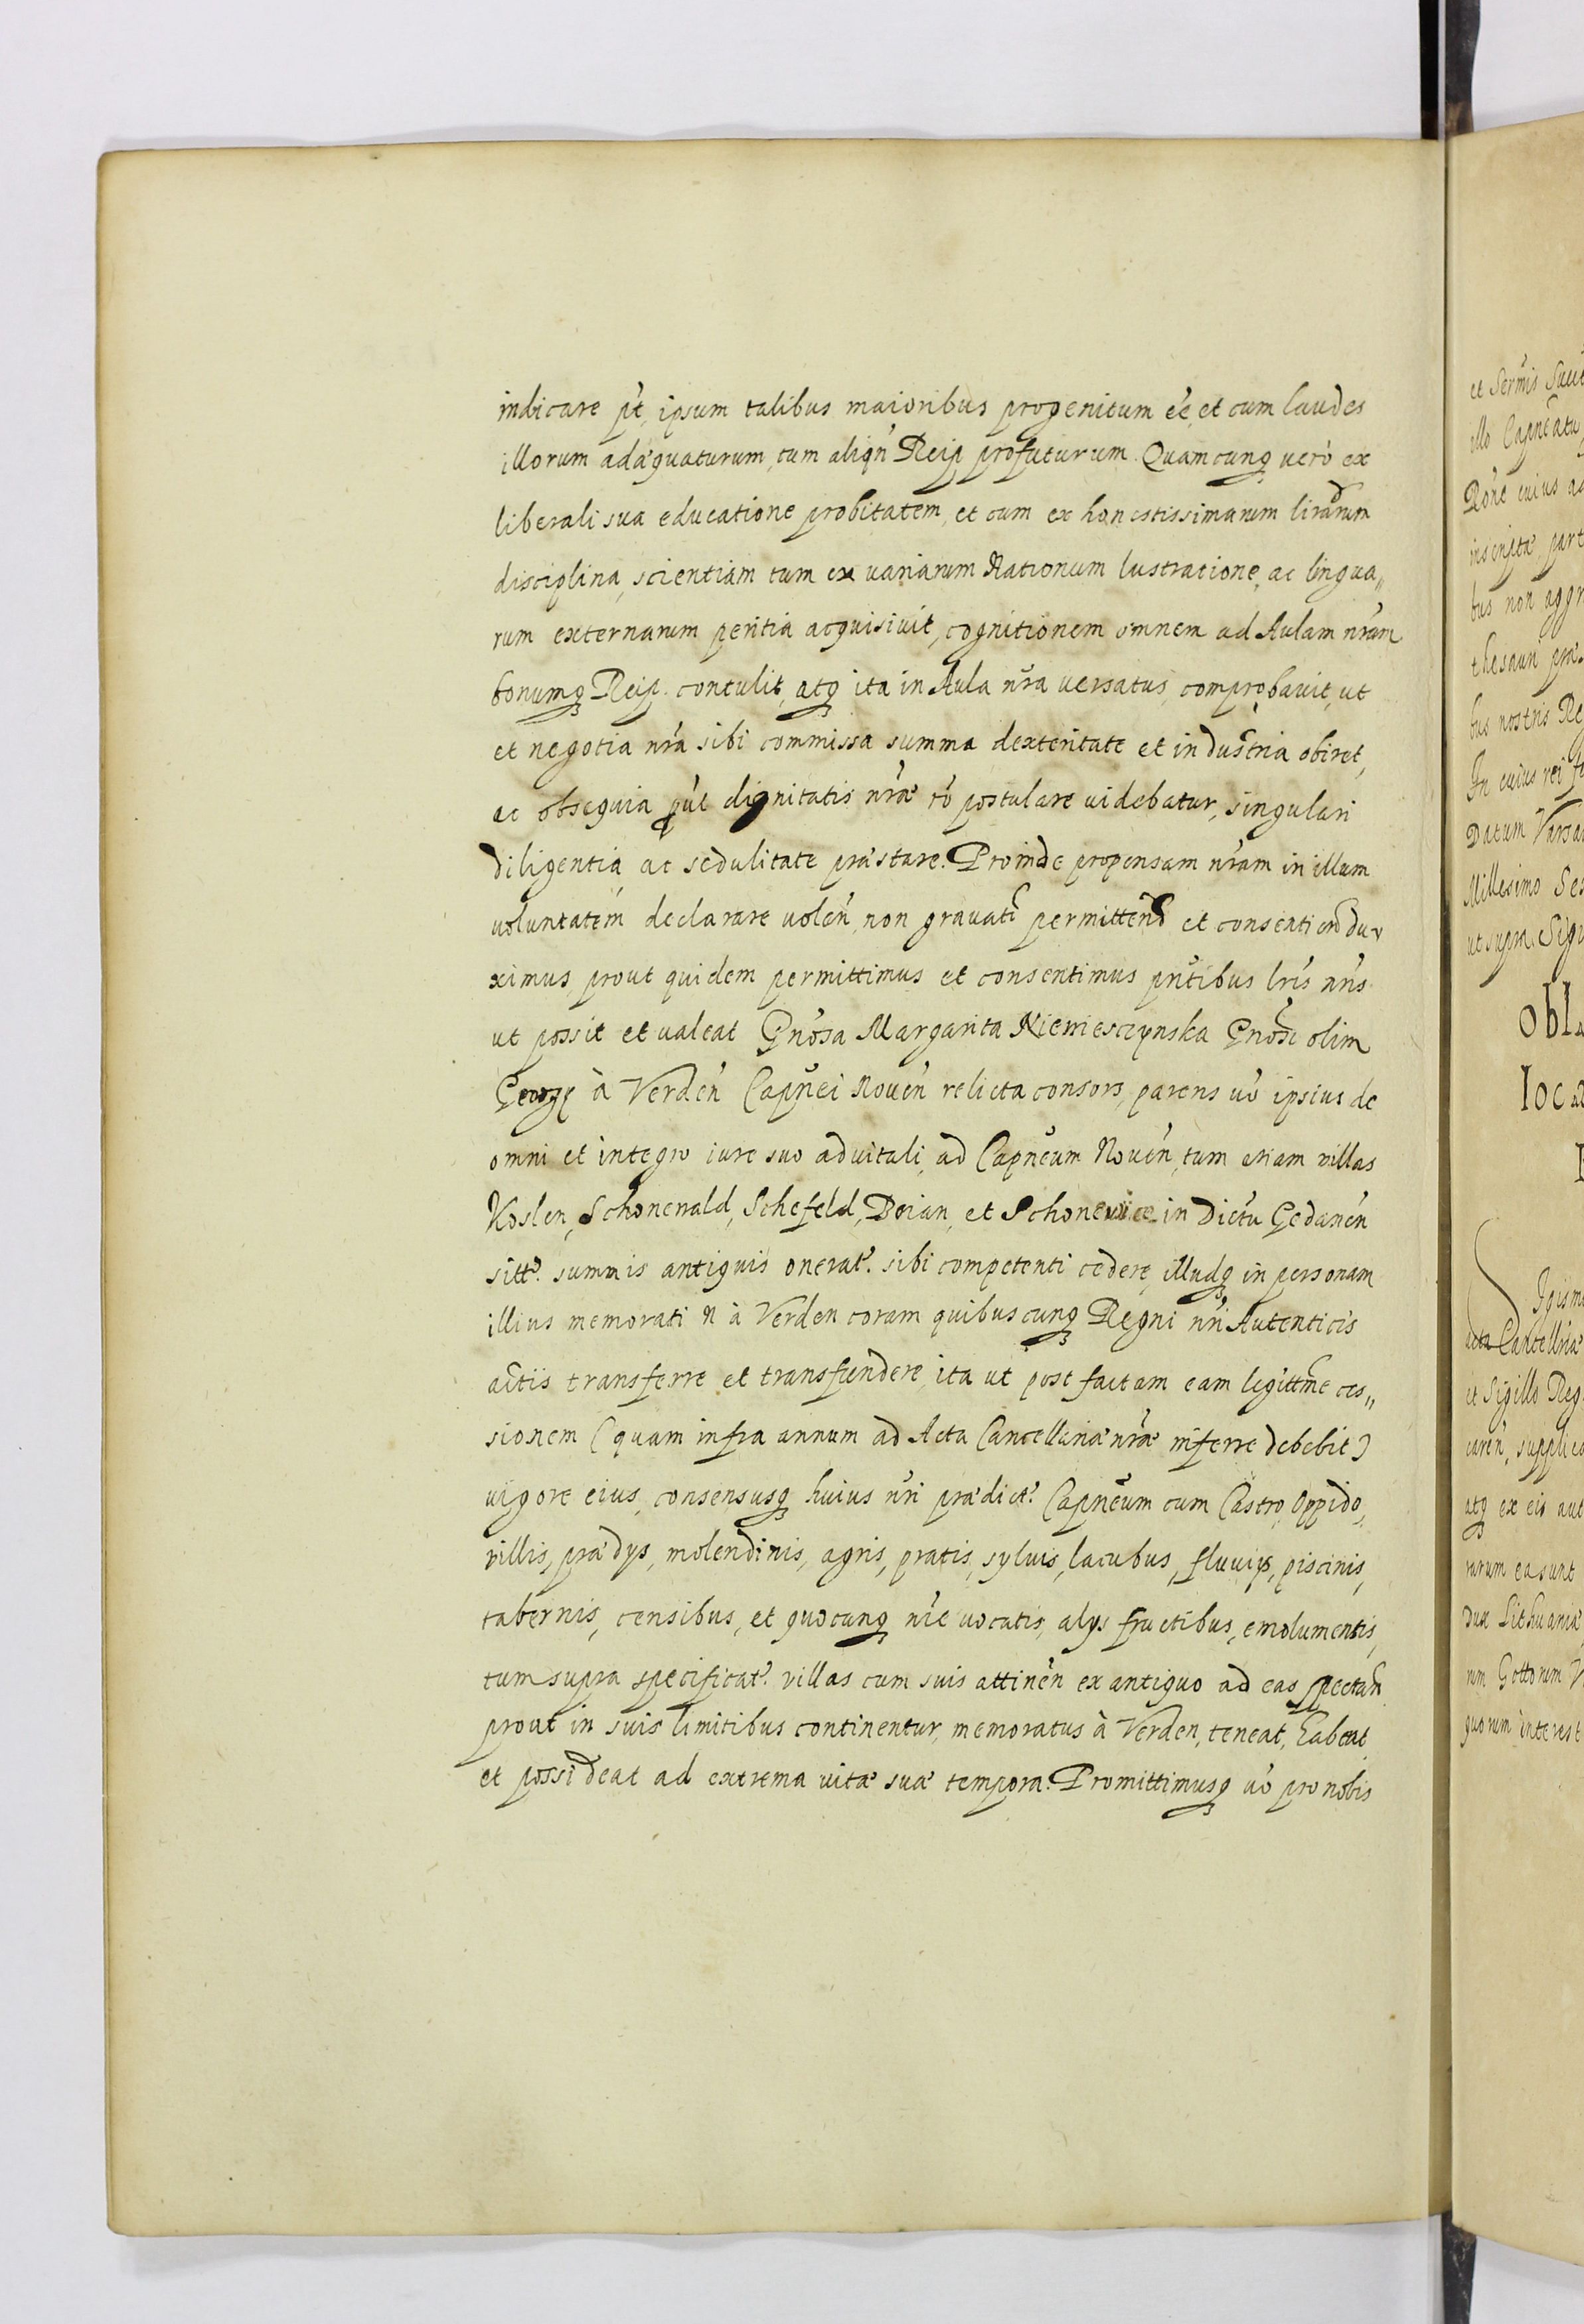 indicare pt, ipsum talibus maioribus progenitum ee, et cum laudes
illorum adæquaturum, tum aliqn Reip. profuturum. Quamcunq vero ex
liberali sua educatione probitatem, et cum ex honestissimarum lirarum
disciplina, scientiam tum ex variarum Nationum lustratione, ac lingua„
rum externarum peritia acquisiuit, cognitionem omnem ad Aulam nram
bonumq Reip. contulit, atq ita in Aula nra versatus, comprobavit, ut
et negotia nra sibi commissa summa dexteritate et industria obiret,
ac obsequia put dignitatis nræ ro postulare videbatur, singulari
diligentia ac sedulitate præstare. Proinde propensam nram in illum
voluntatem declarare volen, non gravati permittend et consentiend du„
ximus, prout quidem permittimus et consentimus pntibus lris nris
ut possit et valeat Gnosa Margarita Niemiesczynska Gnosi olim
Georgy à Verden Capnei Noven relicta consors, parens vo ipsius de
omni et integro iure suo advitali, ad Capneum Noven, tum etiam villas
Koslen, Schonenald, Schefeld, Doian, et Schonewice in Dictu Gedanen
sitt. summis antiquis onerat. sibi competenti cedere, illudq in personam
illius memorati N à Verden coram quibuscunq Regni nri Autenticis
actis transferre et transfundere, ita ut post factam eam legittme ces„
sionem (quam infra annum ad Acta Cancellariæ nræ inferre debebit)
vigore eius, consensusq huius nri prædict. Capneum cum Castro, Oppido,
villis, prædys, molendinis, agris, pratis, sylvis, lacubus, fluvijs, piscinis,
tabernis, censibus, et quocunq nie vocatis, alys fructibus, emolumentis,
tum supra specificat. villas cum suis attinen ex antiquo ad eas spectan
prout in suis limitibus continentur, memoratus à Verden, teneat, habeat
et possideat ad extrema vitæ suæ tempora. Promittimusq vo pro nobis
et Sermis
illo Capneatu
Rone cuius
thesauri
bus nostris
In cuius rei
Datum
Millesimo
ut supra.
Cancellriæ
et Sigillo
atq ex eis
rarum ea sunt
dux Lithuaniæ
rum Gottorum
quorum interest